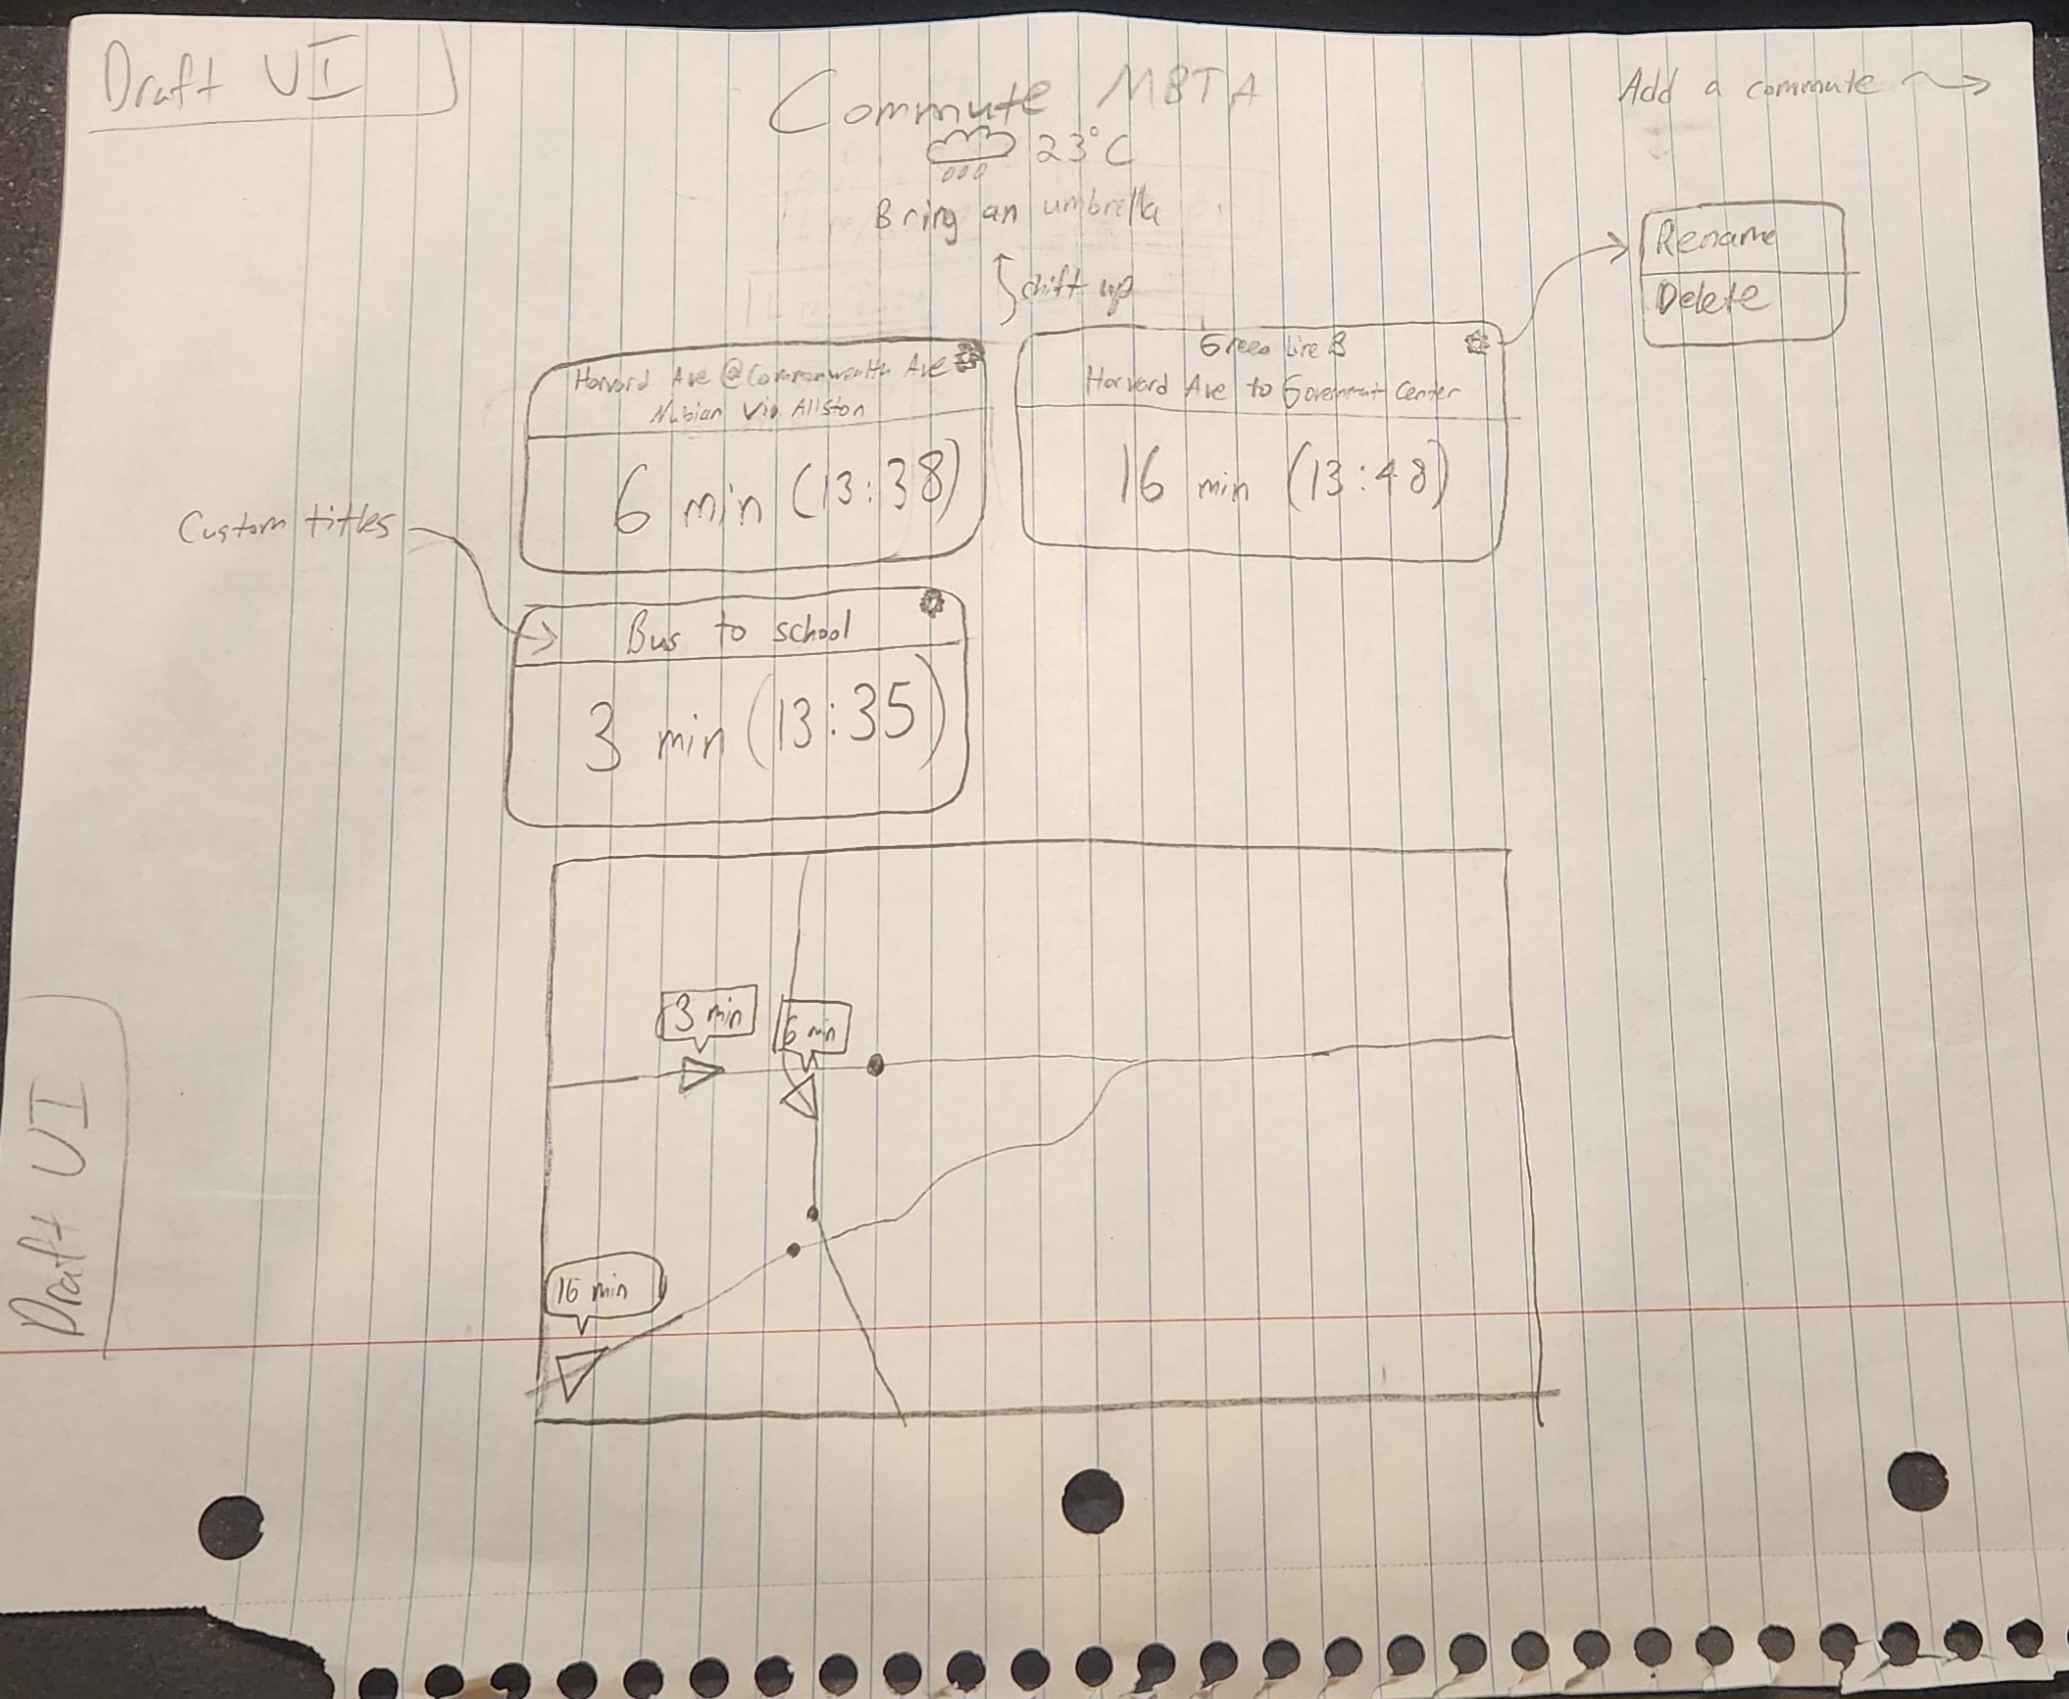 Draft UI
Commute MBTA
Add a commute
23°C
Bring an umbrella
Rename
Delete
shift up
Harvard Ave @ Commonwealth Ave
Nubian Via Allston
6 min (13:38)
Green Line B
Harvard Ave to Government Center
16 min (13:48)
Custom titles
Bus to school
3 min (13:35)
3 min
6 min
16 min
Draft UI